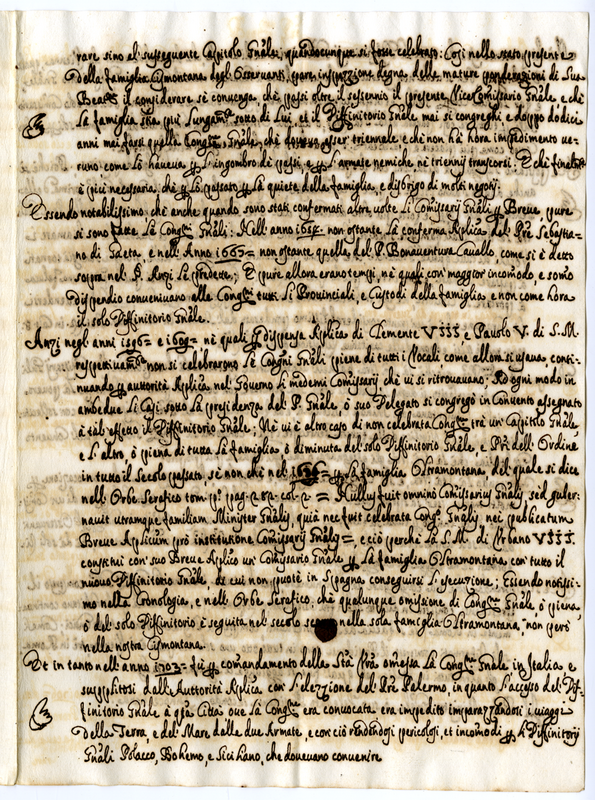 rare sino al susseguente Capitolo Gnãle, quandocunque si fosse celebrato: Così nello stato presente
della famiglia Cismontana degl'Osservanti, pare inspezzione degna delle mature ponderazioni di Sua
Beatᵉ il considerare se convenga, chè passi oltre il sessennio il presente Vicecomissario Gnãle, e chè
la famiglia stia più lungamᵗᵉ sotto di lui, et il Diffinitorio Gnãle mai si congreghi e doppo dodici
anni mai farsi quella Congⁿᵉ Gnãle, chè esser triennale e chè non hà hora impedimento ve-
runo come lo haveva p l'ingombro de' passi e p l'armate nemiche nè triennij transcorsi. E chè
è più necessaria, chè p lo passato p la quiete della famiglia, e disbrigo di molti negotij.
Essendo notabilissimo chè anche quando sono stati confermati altre volte li Comissarij Gnãli p Breve, pure
si sono fatte le Congⁿⁱ Gnãli: Nell'anno non ostante la conferma Aplica del Pre Sebastia-
no di Gaeta, e nell'Anno non ostante quella del P. Bonaventura Cavallo, come si è detto
sopra nel §. Anzi le predette; E pure allora erano tempi, nè quali con maggior incomodo, e somo
dispendio convenivano alle Congⁿⁱ tutti li Provinciali, e Custodi della famiglia, e non come hora
il solo Diffinitorio Gnãle.
Anzi negli anni 1596 = e 1609 = nè quali p dispensa Aplica di Clemente VIII e Pavolo V. di S. M.
respettivamᵗᵉ non si celebrarono le Congⁿⁱ Gnãli piene di tutti i Vocali come allora si usava conti-
nuando p autorità Aplica nel Governo li medemi Comissarij chè vi si ritrovavano; Ad ogni modo in
ambedue li Casi sotto la presidenza del P. Gnãle, ò suo Delegato si congregò in Convento assegnato
à tal'effetto il Diffinitorio Gnãle. Nè vi è altro caso di non celebrata Congⁿᵉ trà un'Capitolo Gnãle,
e l'altro, ò piena di tutta la famiglia, ò diminuta del solo Diffinitorio Gnãle, e Pri dell'Ordine
in tutto il secolo passato, sè non chè nel = p la famiglia Oltramontana, del quale si dice
nell'Orbe Serafico tom. pᵒ pag. 282. col. 2 = Nullus fuit omninò Comissarius Gnãlis sed guber-
navit utramque familiam Minister Gnãlis, quià nec fuit celebrata Congⁿ Gnãlis, nec publicatum
Breve Aplicum prò institutione Comissarij Gnãlis = e ciò perche la S. M. di Urbano VIII.
constituì con suo Breve Aplico un'Comissario Gnãle p la famiglia Oltramontana con tutto il
nuovo Diffinitorio Gnãle, de cui non puotè in Spagna conseguirsi l'esecuzione; Essendo notissi-
mo nella Cronologia, e nell'Orbe Serafico, chè qualunque omissione di Congⁿᵉ Gnãle ò piena,
ò del solo Diffinitorio è seguita nel secolo nella sola famiglia Oltramontana, non però
nella nostra Cismontana.
Et in tanto nell'anno 1703 = fù p comandamento della Sᵗà Vra omessa la Congⁿᵉ Gnãle in Italia e
supplittosi dall'Auttorità Aplica con l'elezzione del Pre Palermo, in quanto l'accesso del Dif-
finitorio Gnãle à qsta Città ove la Congⁿᵉ era convocata era impedito imparazzandosi i viaggi
della Terra, e del Mare dalle due Armate, e con ciò rendendosi pericolosi, et incomodi p li Diffinitorij
Gnãli Polacco, Bohemo, e Siciliano, che dovevano convenire